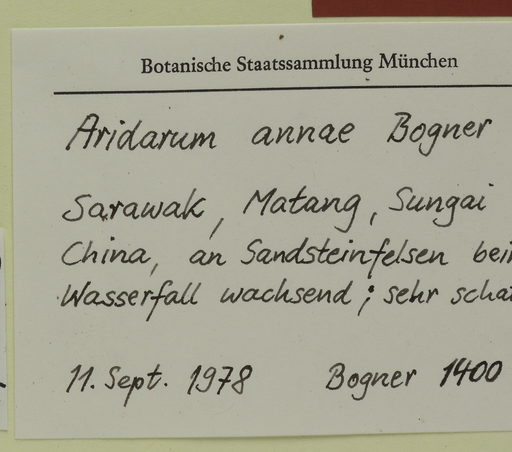 Botanische Staatssammlung München
Aridarum annae Bogner
Sarawak, Matang, Sungai
China, an Sandsteinfelsen
Wasserfall wachsend; sehr
11. Sept. 1978 Bogner 1400